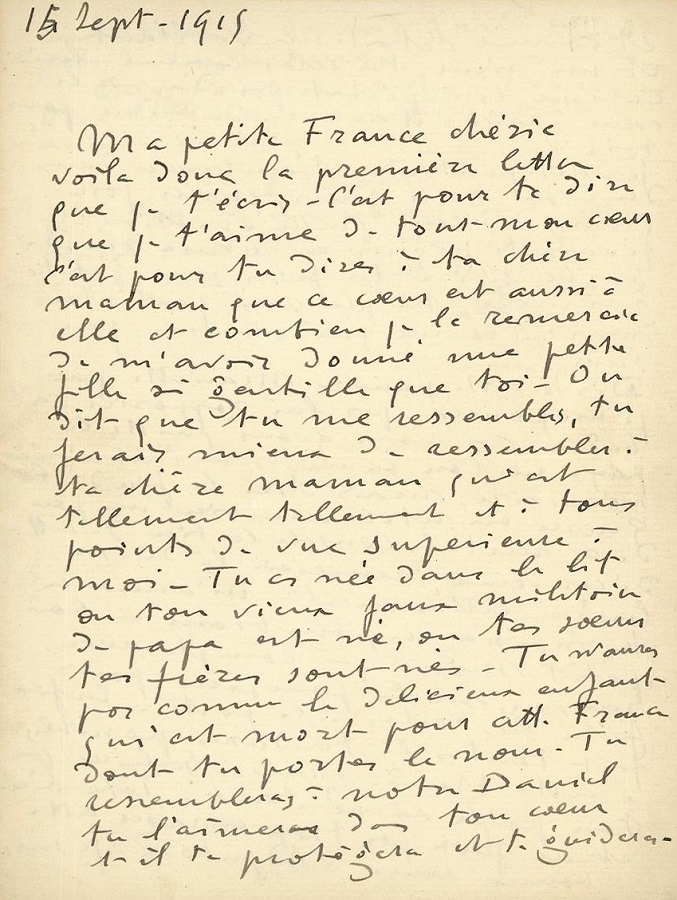 15 Sept - 1915
Ma petite France chérie
voila donc la première lettre
que je t'écris - C'est pour te dire
que je t'aime de tout mon cœur
c'est pour tu dises à ta chère
maman que ce cœur est aussi à
elle et combien je la remercie
de m'avoir donné une petite
fille si gentille que toi - On
dit que tu me ressembles, tu
ferais mieux de ressembler à
ta chère maman qui est
tellement tellement et à tous
points de vue superieure à
moi - Tu es née dans le lit
ou ton vieux faux militaire
de papa est né, ou tes sœurs
tes frères sont nés - Tu n'auras
pas connu le delicieux enfant
qui est mort pour cette France
dont tu portes le nom - Tu
ressembleras à notre Daniel
tu l'aimeras dans ton cœur
et il te protègera et te guidera -